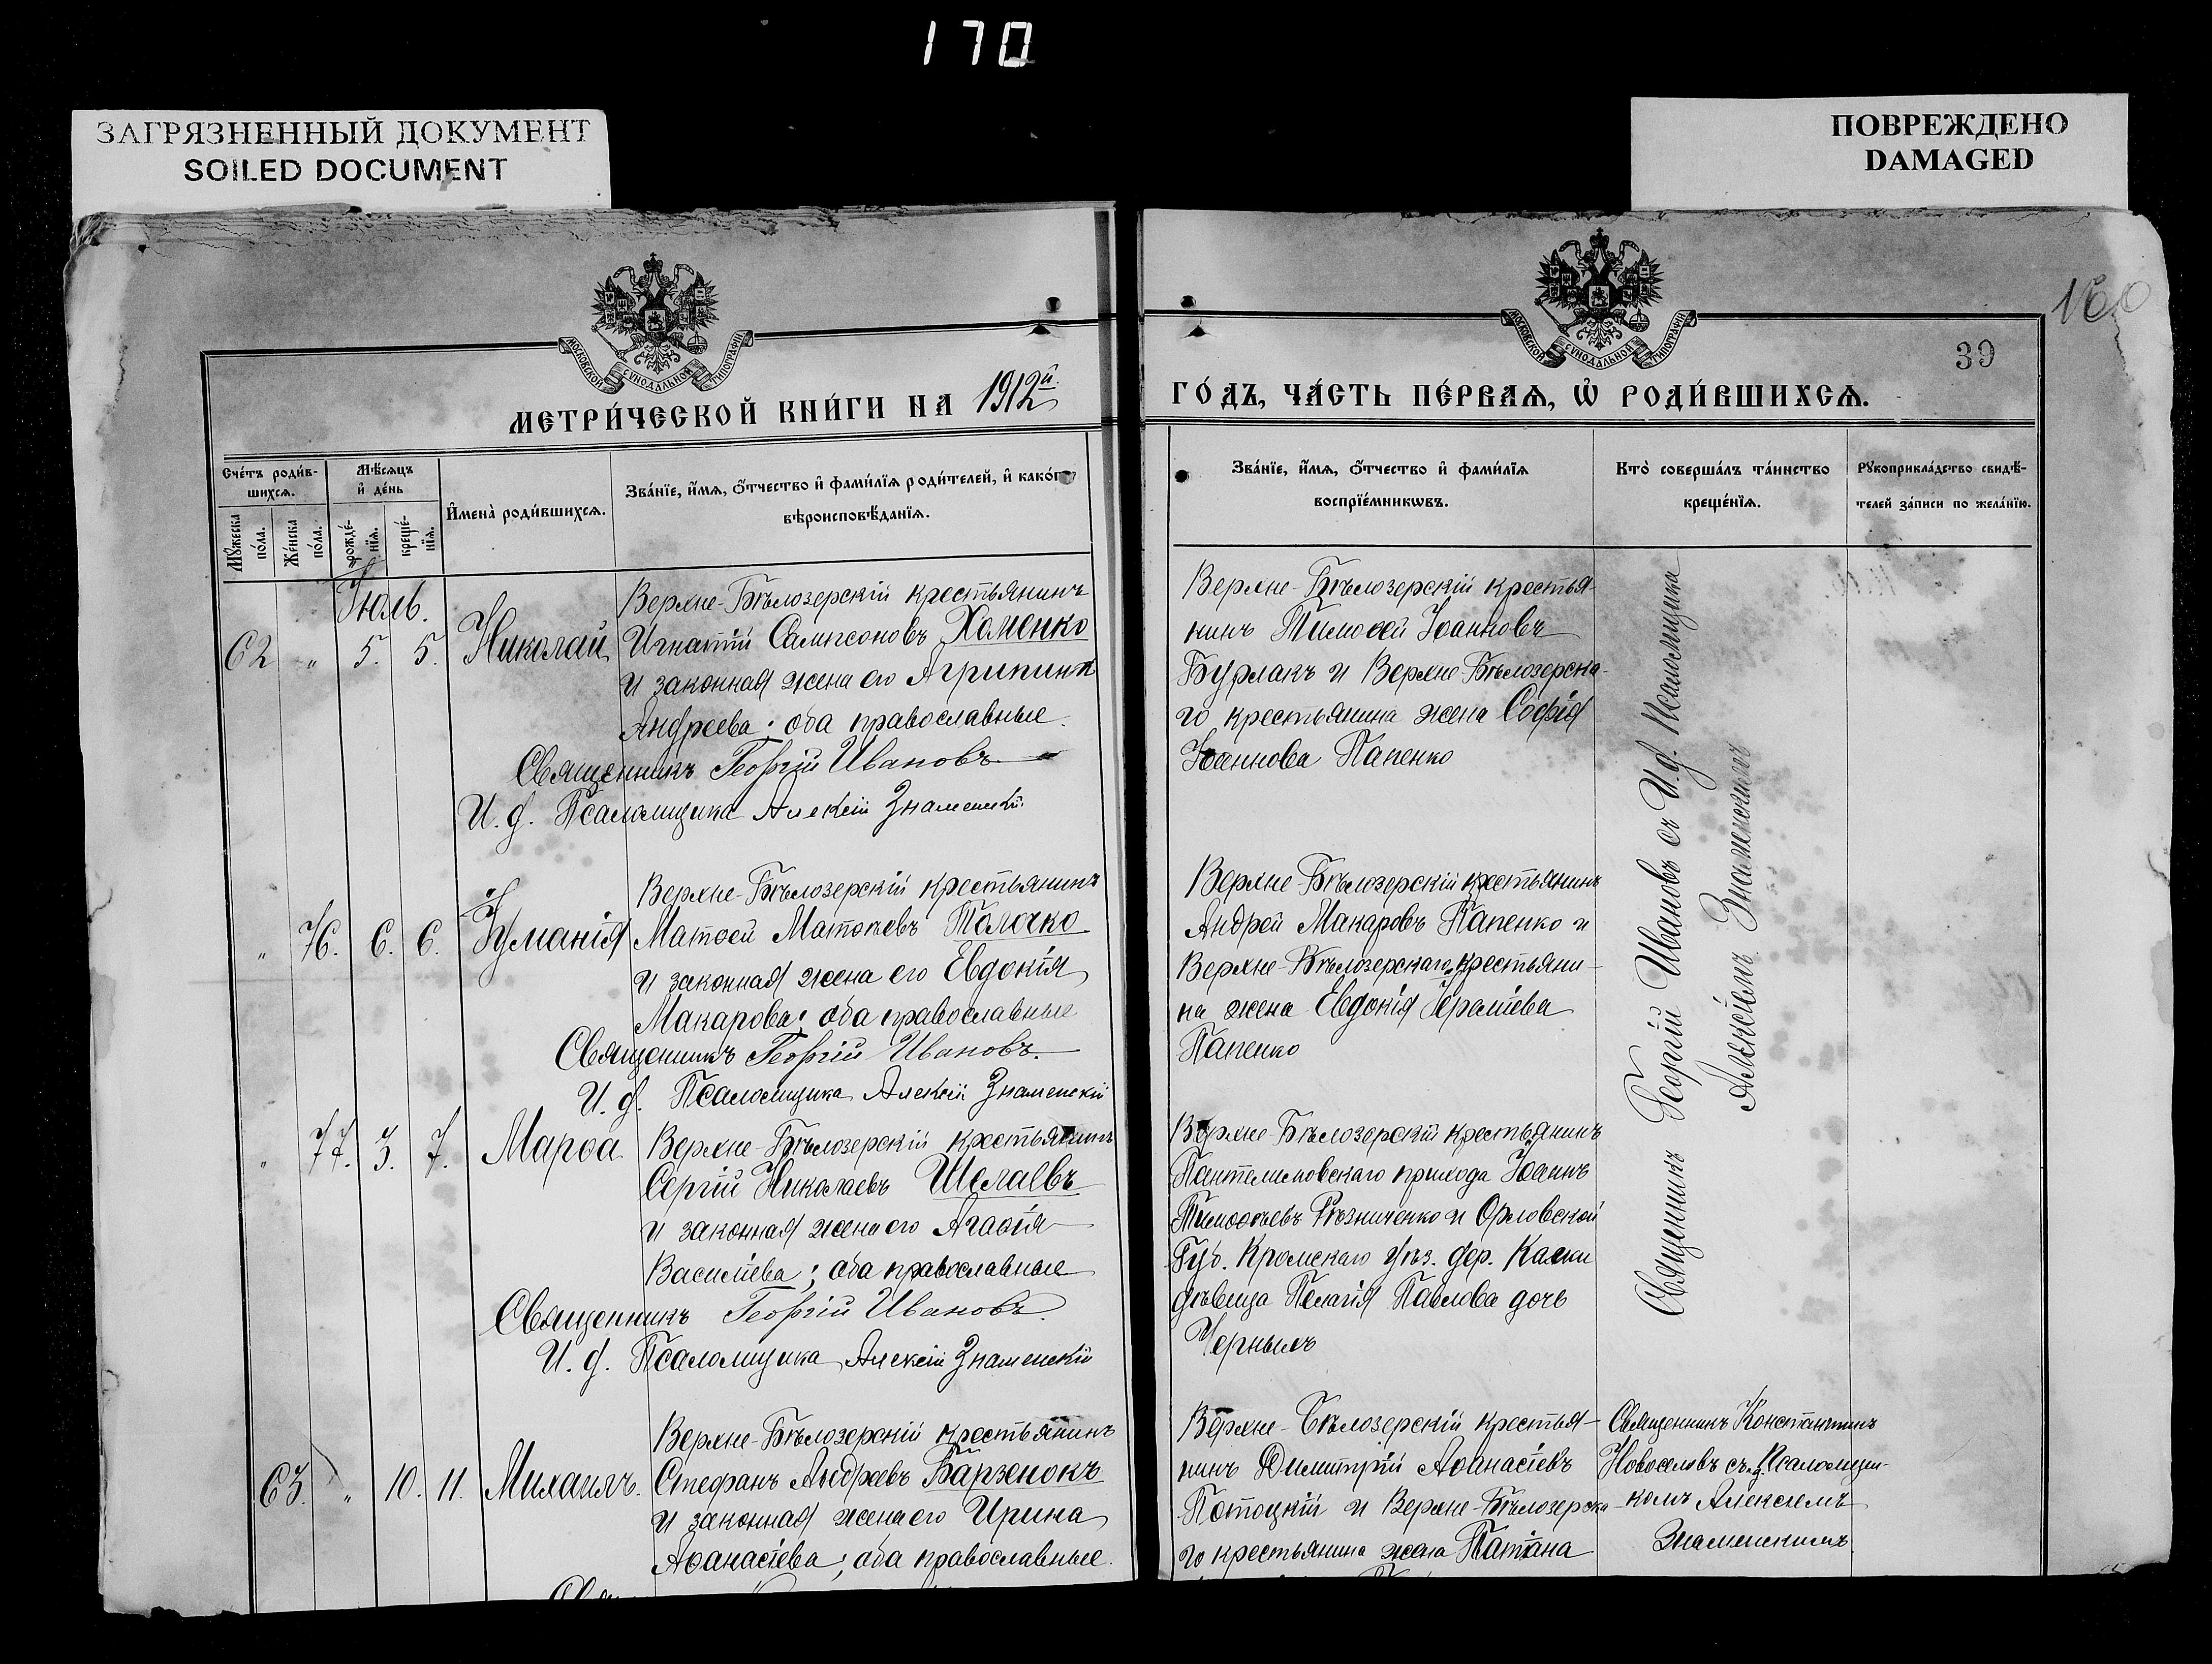 170
ЗАГРЯЗНЕННЫЙ ДОКУМЕНТ
SOILED DOCUMENT
ПОВРЕЖДЕНО
DAMAGED
160
39
МОСКОВСКОЙ СѴНОДАЛЬНОЙ ТИПОГРАФІИ
МЕТРИ́ЧЕСКОЙ КНИ́ГИ НА 1912й
МОСКОВСКОЙ СѴНОДАЛЬНОЙ ТИПОГРАФІИ
ГО́ДЪ, ЧА́СТЬ ПЕ́РВАѦ, Ѡ҆ РОДИ́ВШИХСѦ.
Сче́тъ роди́в-
шихсѧ.
Мꙋ́жеска
по́ла.
Же́нска
по́ла.
Мѣ́сѧцъ
и҆ де́нь
рожде́-
нїѧ.
креще́-
нїѧ.
И҆мена̀ роди́вшихсѧ.
Зва́нїе, и҆́мѧ, ѻ҆́тчество и҆ фами́лїѧ роди́телей, и҆ како́гѡ
вѣроисповѣ́данїѧ.
Зва́нїе, и҆́мѧ, ѻ҆́тчество и҆ фами́лїѧ
воспрїе́мникѡвъ.
Кто̀ соверша́лъ та́инство
креще́нїѧ.
Рꙋкоприкла́дство свидѣ́-
телей за́писи по жела́нїю.
Іюль.
62 " 5. 5. Николай
Верхне-Бѣлозерскій крестьянинъ
Игнатій Сампсоновъ Хоменко
и законная жена его Агрипина
Андреева; оба православные.
Священникъ Георгій Ивановъ
И. д. Псаломщика Алексій Знаменскій
Верхне-Бѣлозерскій крестья-
нинъ Тимоѳей Іоанновъ
Бурлакъ и Верхне-Бѣлозерска-
го крестьянина жена Софія
Іоаннова Папенко
Священникъ Георгій Ивановъ съ И. д. Псаломщика
Алексіемъ Знаменскимъ
" 76. 6. 6. Іуманія
Верхне-Бѣлозерскій крестьянинъ
Матѳей Матѳеевъ Толочко
и законная жена его Евдокія
Макарова; оба православные
Священникъ Георгій Ивановъ.
И. д. Псаломщика Алексій Знаменскій
Верхне-Бѣлозерскій крестьянинъ
Андрей Макаровъ Папенко и
Верхне-Бѣлозерскаго крестьяни-
на жена Евдокія
Папенко
" 77. 3. 7. Марѳа
Верхне-Бѣлозерскій крестьянинъ
Сергій Николаевъ Шелаевъ
и законная жена его Агаѳія
Василіева; оба православные
Священникъ Георгій Ивановъ.
И. д. Псаломщика Алексій Знаменскій
Верхне-Бѣлозерскій крестьянинъ
Пантелимоновскаго прихода Іоаннъ
Тимоѳеевъ Рѣзниченко и Орловской
Губ. Кромскаго уѣз. дер. Каски
дѣвица Пелагія Павлова дочь
Черныхъ
63. " 10. 11. Михаилъ.
Верхне-Бѣлозерскій крестьянинъ
Стефанъ Андреевъ Барзенокъ
и законная жена его Ирина
Аѳанасіева; оба православные.
Верхне-Бѣлозерскій крестья-
нинъ Димитрій Аѳанасіевъ
Потоцкій и Верхне-Бѣлозерска-
го крестьянина жена Татіана
Священникъ Константинъ
Новоселовъ съ Псаломщи-
комъ Алексіемъ
Знаменскимъ